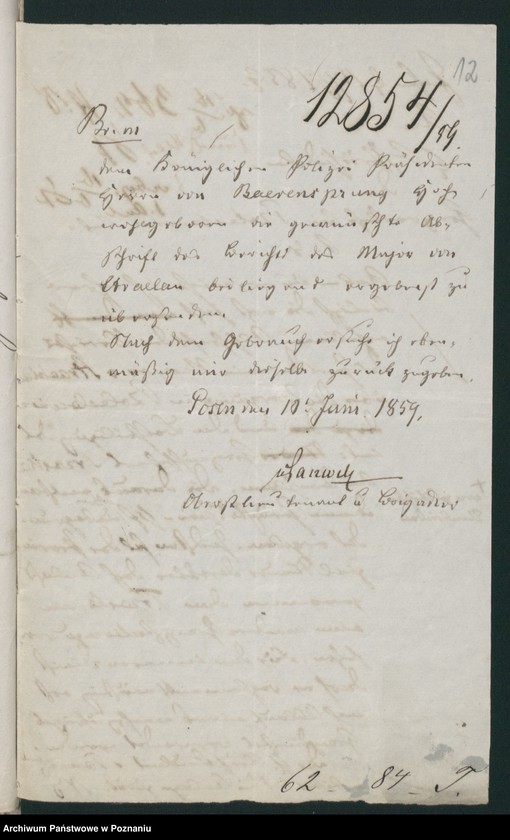 12
12854/59.
Br. m
dem Königlichen Polizei Präsidenten
Herrn von Baerensprung Hoch-
wohlgeboren die gewünschte Ab-
schrift des Berichts des Major von
beiliegend ergebenst zu
übersenden.
Nach dem Gebrauch ersuche ich eben-
mäßig mir dieselbe zurück zugeben.
Posen den 10t Juni 1859.
Oberstlieutenant u Brigadier
62 - 84 - P.
Archiwum Państwowe w Poznaniu